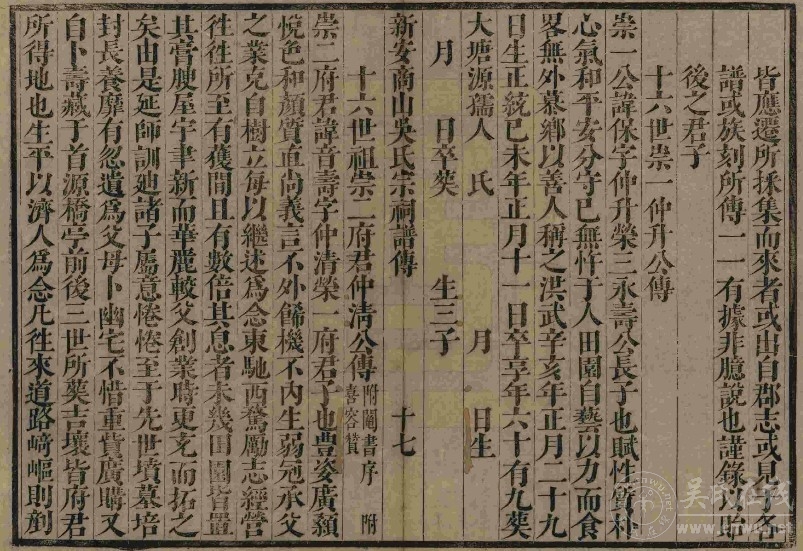 皆應遷所採集而來者或出自郡志或見于各
譜或族刻所傳一一有據非臆說也謹錄以貽
後之君子
十六世崇一仲升公傳
崇一公諱保字仲升榮三永壽公長子也賦性質朴
心氣和平安分守己無忤于人田園自藝以力而食
畧無外慕鄉以善人稱之洪武辛亥年正月二十九
日生正統己未年正月十一日卒享年六十有九葬
大塘源孺人 氏 月 日生
月 日卒葬 生三子
新安商山吳氏宗祠譜傳 十七
十六世祖崇二府君仲清公傳 附䦰書序 附喜容贊
崇二府君諱音壽字仲清榮一府君子也豊姿廣顙
悅色和顏質直尚義言不外餙機不内生弱冠承父
之業克自樹立每以繼述爲念東馳西騖勵志經營
徃徃所至有獲間且有數倍其息者未幾田園皆置
其膏腴屋宇聿新而華麗較父創業時更充而拓之
矣由是延師訓廸諸子屬意惓惓至于先世墳墓培
封長養靡有忽遺爲父母卜幽宅不惜重貲廣購又
自卜壽藏于首源橋亭前後三世所葬吉壤皆府君
所得地也生平以濟人爲念凡徃來道路崎嶇則剷
吳氏在线